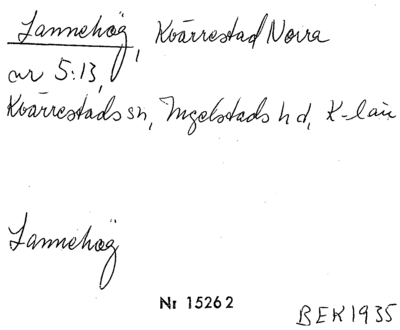 Lannehög, Kvärrestad Norra
nr 5:13,
Kvärrestads sn, Ingelstads hd, K-län
Lannehög
Nr 15262
BEK1935